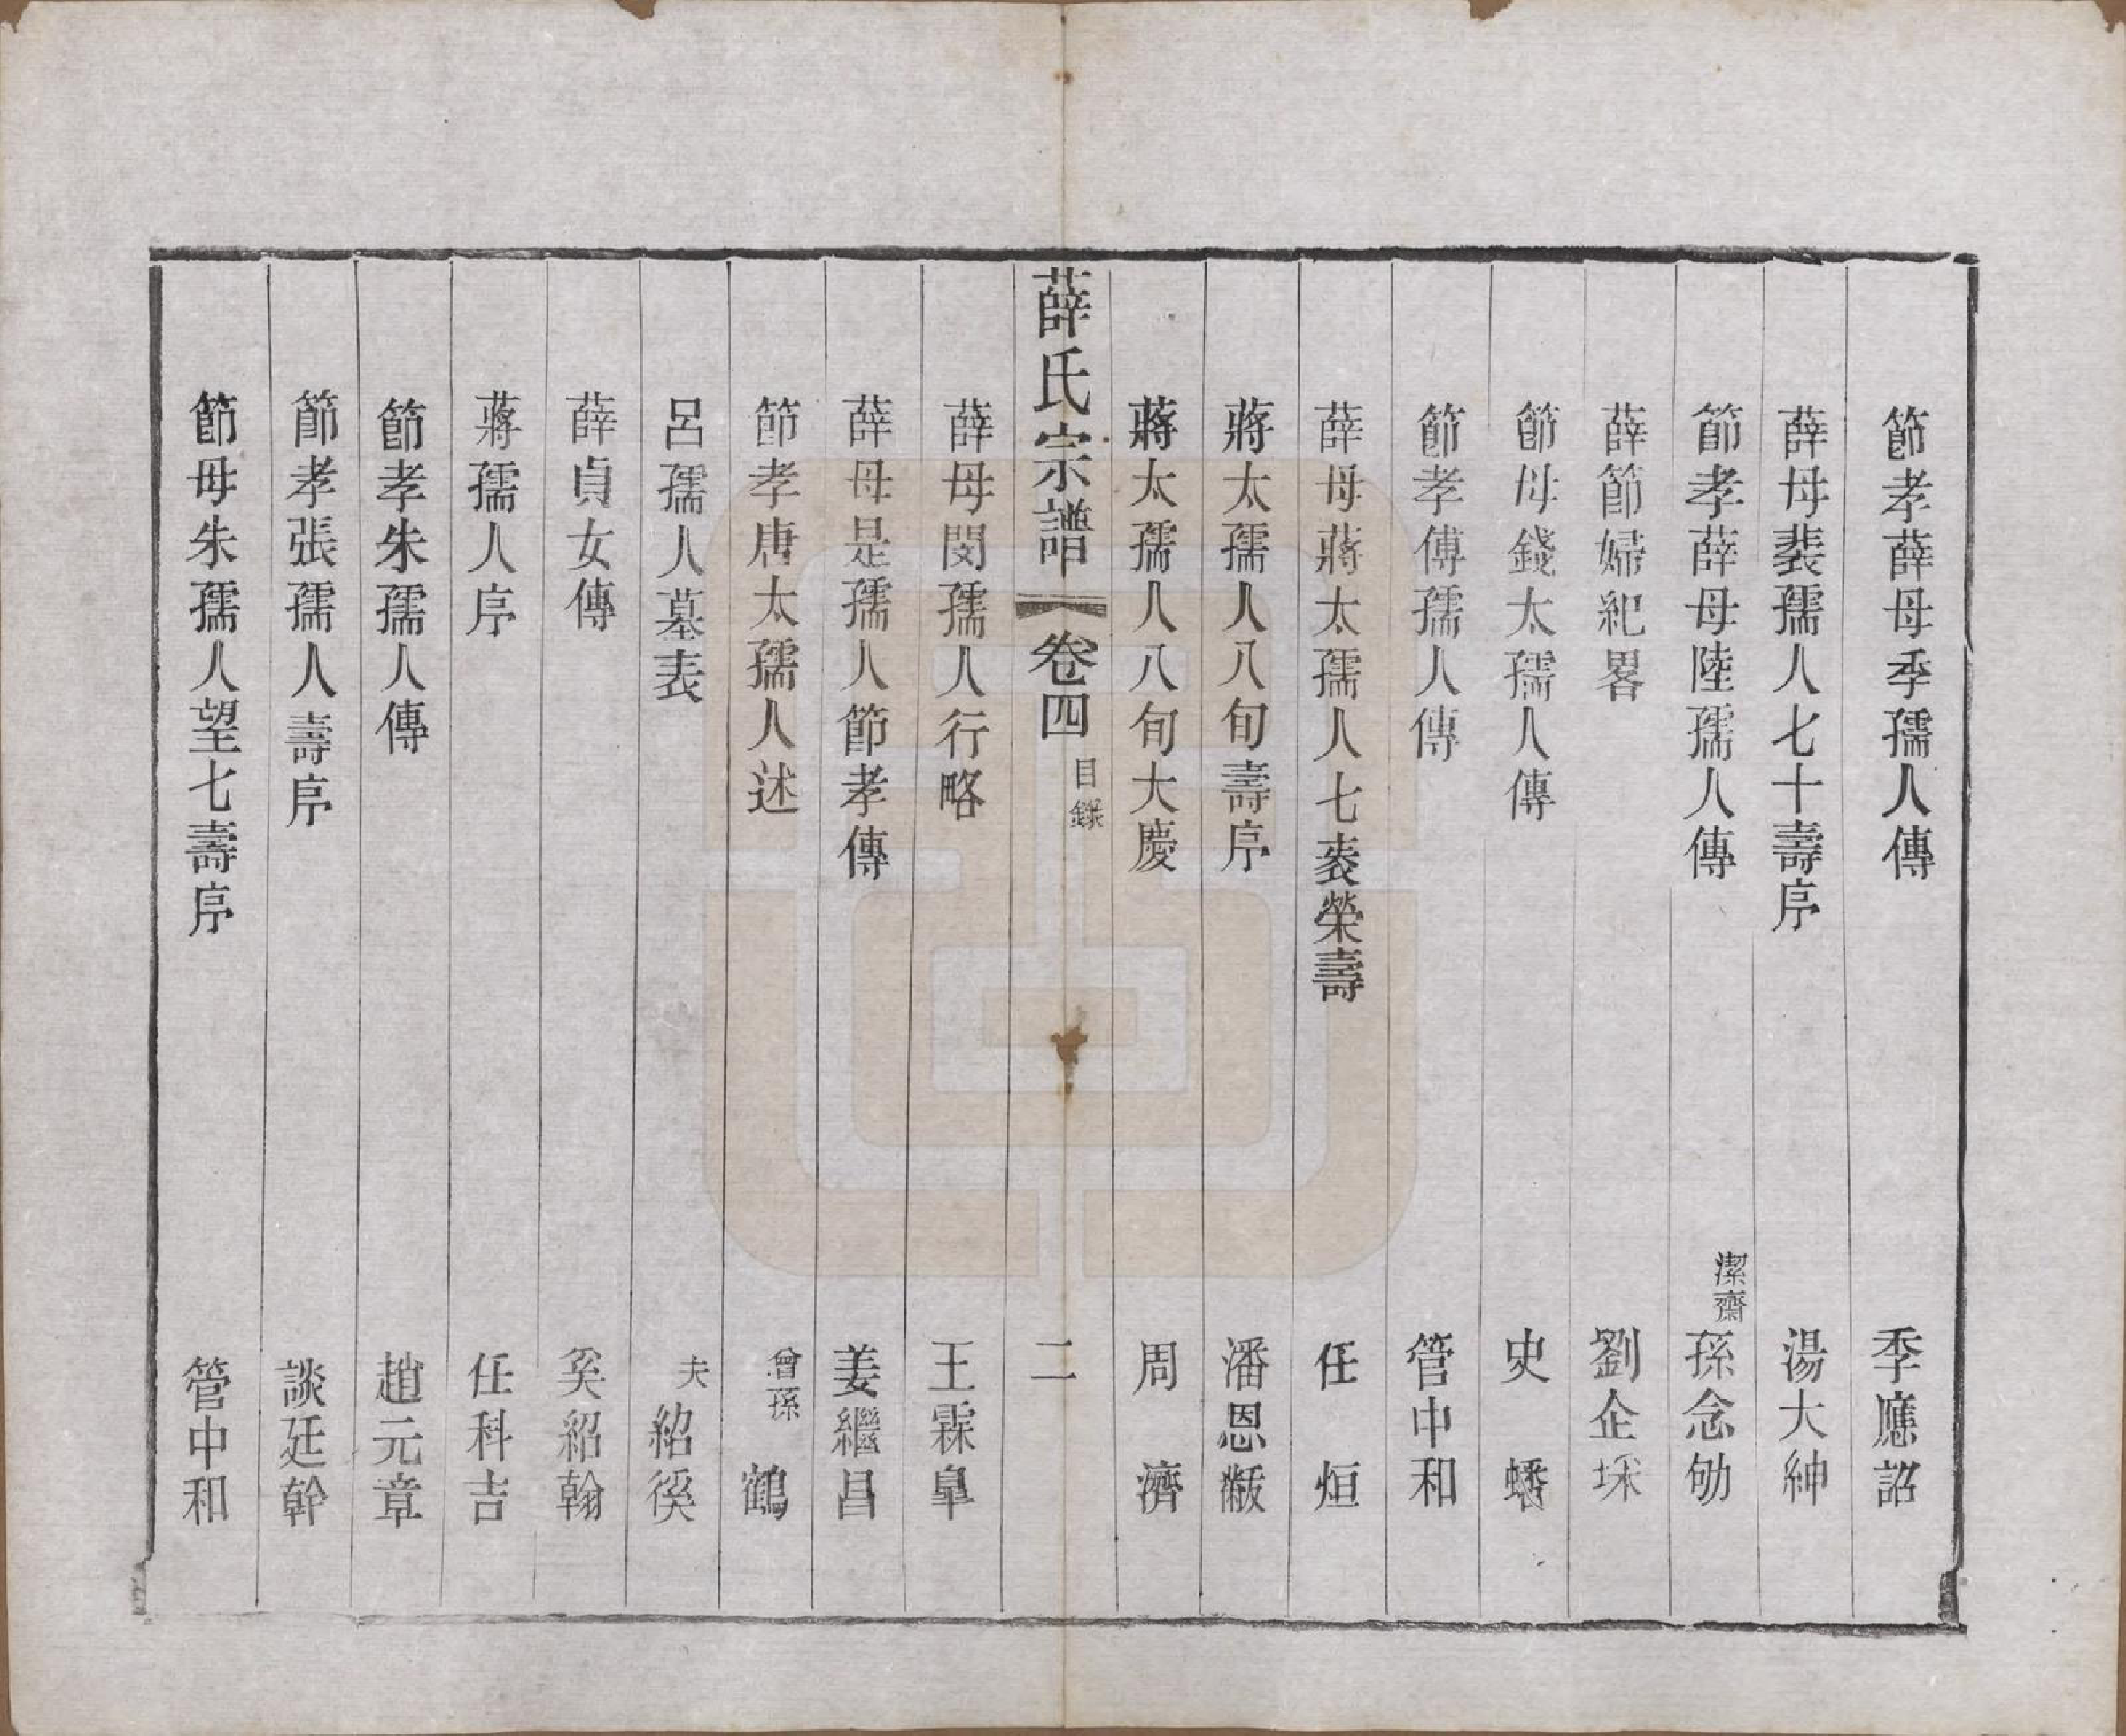 節孝薛母季孺人傳 季應詔
薛母裴孺人七十壽序 湯大紳
節孝薛母陸孺人傳 潔齋孫念劬
薛節婦紀畧 劉企埰
節母錢太孺人傳 史蟠
節孝傅孺人傳 管中和
薛母蔣太孺人七袠榮壽 任烜
蔣太孺人八旬壽序 潘恩黻
蔣太孺人八旬大慶 周濟
薛氏宗譜 卷四 目錄 二
薛母閔孺人行略 王霖皐
薛母是孺人節孝傳 姜繼昌
節孝唐太孺人述 曾孫鶴
呂孺人墓表 夫紹徯
薛貞女傳 奚紹翰
蔣孺人序 任科吉
節孝朱孺人傳 趙元章
節孝張孺人壽序 談廷幹
節母朱孺人望七壽序 管中和